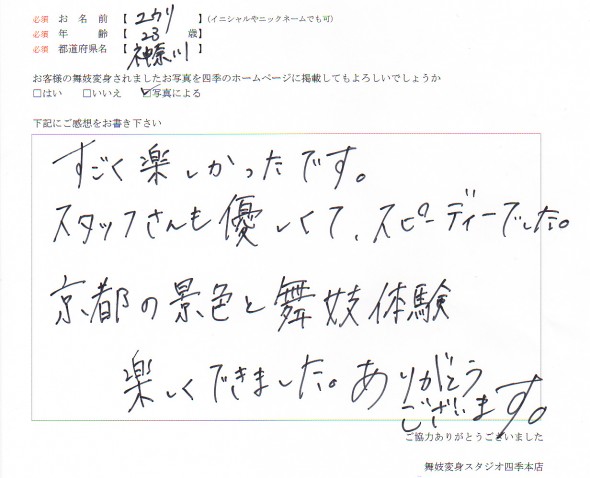 必須 お名前 【 ユウリ 】 (イニシャルやニックネームでも可)
必須 年齢 【 23 歳】
必須 都道府県名 【 神奈川 】
お客様の舞妓変身されましたお写真を四季のホームページに掲載してもよろしいでしょうか
□はい □いいえ ☑写真による
下記にご感想をお書き下さい
すごく楽しかったです。
スタッフさんも優しくて、スピーディーでした。
京都の景色と舞妓体験
楽しくできました。ありがとう
ございます。
ご協力ありがとうございました
舞妓変身スタジオ四季本店